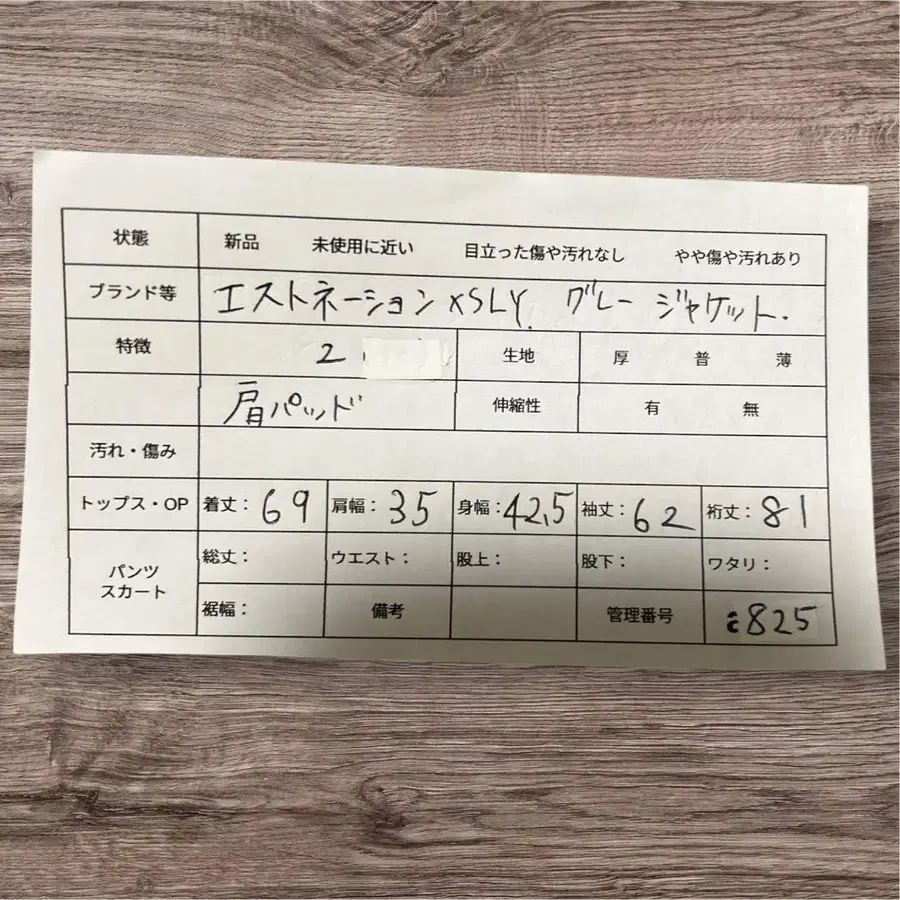 状態 新品 未使用に近い 目立った傷や汚れなし やや傷や汚れあり
ブランド等 エストネーション×SLY. グレー ジャケット.
特徴 2 生地 厚 普 薄
肩パッド 伸縮性 有 無
汚れ・傷み
トップス・OP 着丈：69 肩幅：35 身幅：42.5 袖丈：62 裄丈：81
パンツ スカート 総丈： ウエスト： 股上： 股下： ワタリ：
裾幅： 備考 管理番号 i825